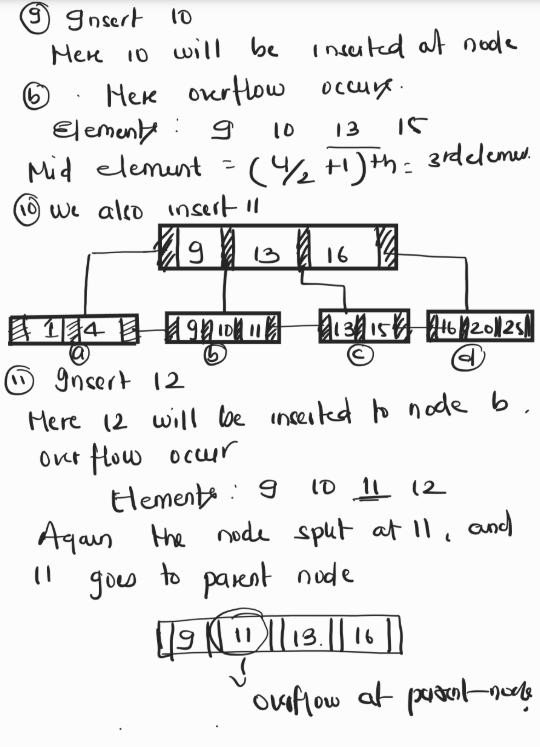 ⑨ Insert 10
Here 10 will be inserted at node
ⓑ . Here overflow occurs.
Elements : 9 10 13 15
Mid element = (4/2 +1)th = 3rd elemen.
⑩ We also insert 11
9 13 16
1 4 9 10 11 13 15 16 20 25
ⓐ ⓑ ⓒ ⓓ
⑪ Insert 12
Here 12 will be inserted to node b .
over flow occur
Elements : 9 10 11 12
Again the node split at 11, and
11 goes to parent node
9 11 13. 16
overflow at parent-node.